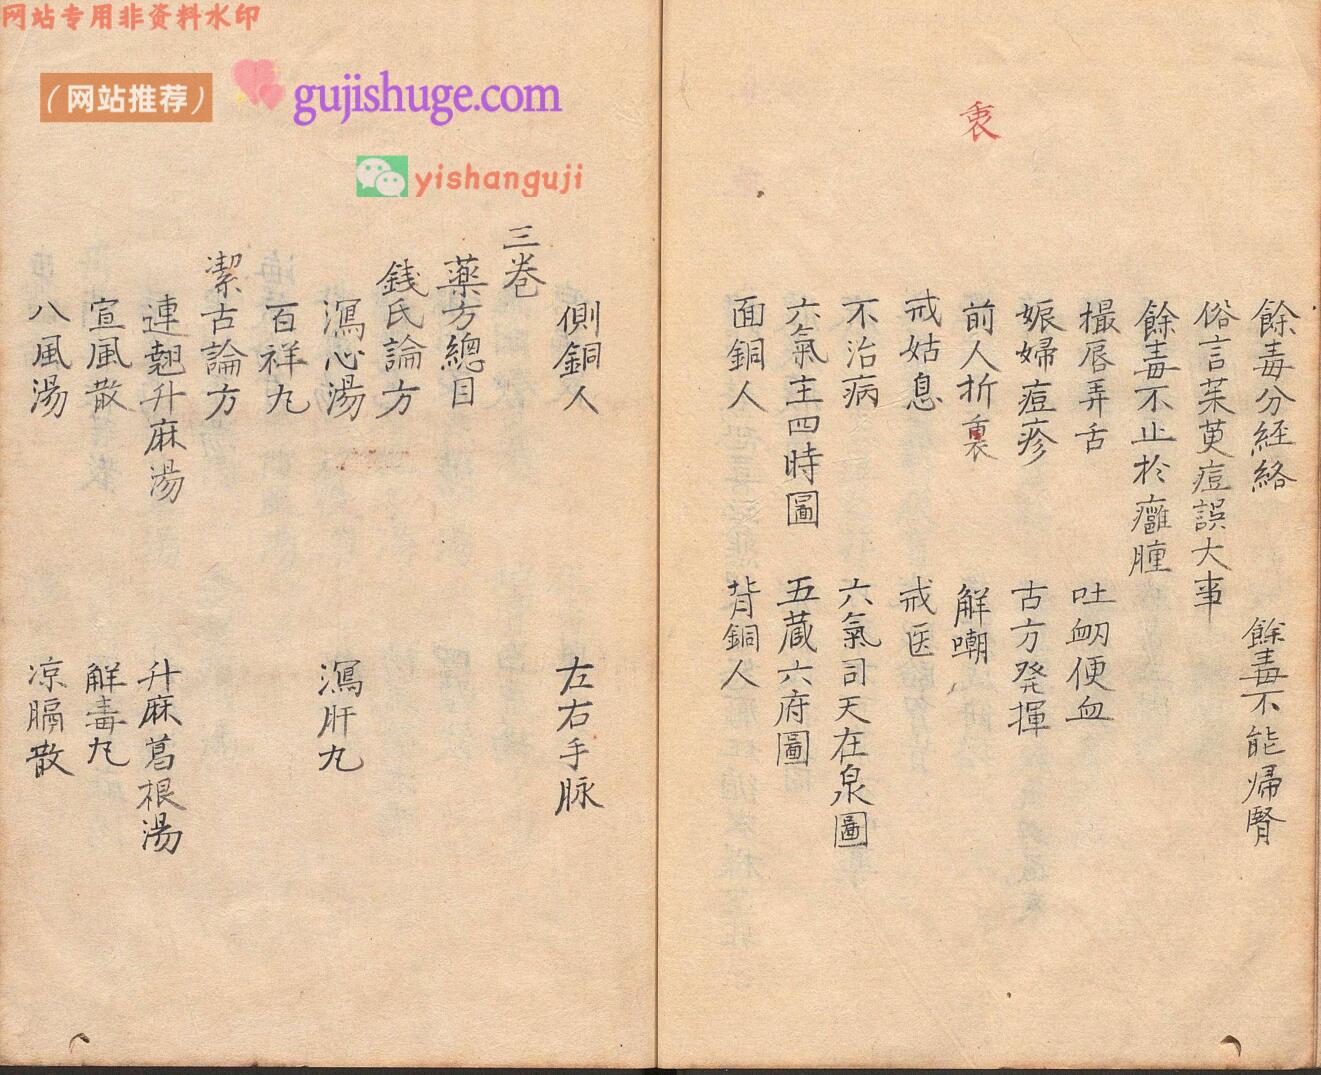 网站专用非资料水印
（网站推荐）
gujishuge.com
yishanguji
衷
餘毒分経絡
餘毒不能帰腎
俗言茱萸痘誤大事
餘毒不止於癰腫
撮唇弄舌
吐衂便血
娠婦痘疹
古方発揮
前人折裏
解嘲
戒姑息
戒医
不治病
六氣司天在泉圖
六氣主四時圖
五蔵六府圖
面銅人
背銅人
側銅人
左右手脉
三巻
薬方總目
銭氏論方
瀉心湯
瀉肝九
百祥九
潔古論方
連翹升麻湯
升麻葛根湯
宣風散
解毒九
八風湯
凉膈散